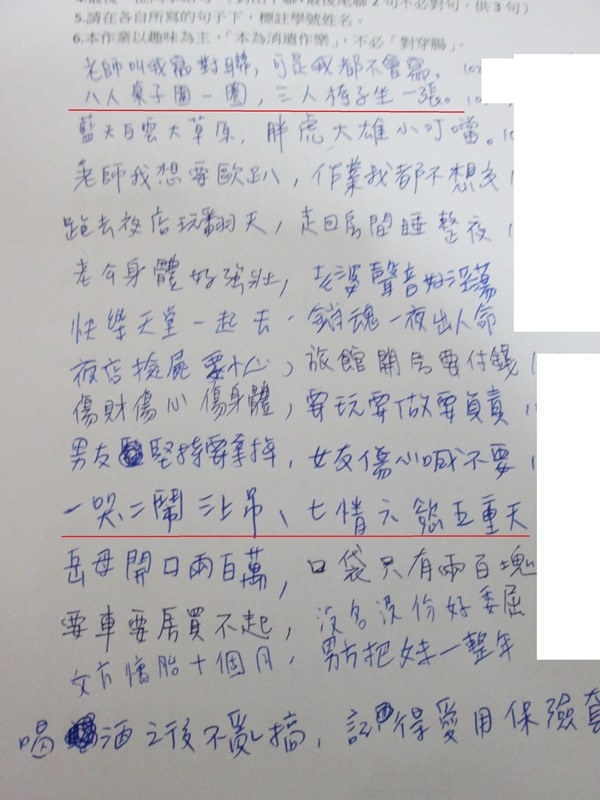 5.請在各自所寫的句子下，標註學號姓名。
6.本作業以趣味為主，「本為消遣作樂」，不必「對穿腸」。
老師叫我寫對聯，可是我都不會寫。
八人桌子圍一圈，三人椅子坐一張。
藍天白雲大草原，胖虎大雄小叮噹。
老師我想要歐趴，作業我都不想交
跑去夜店玩翻天，走回房間睡整夜
老公身體好強壯，老婆聲音好淫蕩
快樂天堂一起去，銷魂一夜出人命
夜店撿屍要小心，旅館開房要付錢
傷財傷心傷身體，要玩要做要負責
男友堅持要拿掉，女友傷心喊不要
一哭二鬧三上吊、七情六慾五重天
岳母開口兩百萬，口袋只有兩百塊
要車要房買不起，沒名沒份好委屈
女方懷胎十個月，男方把妹一整年
喝酒之後不亂搞，記得愛用保險套